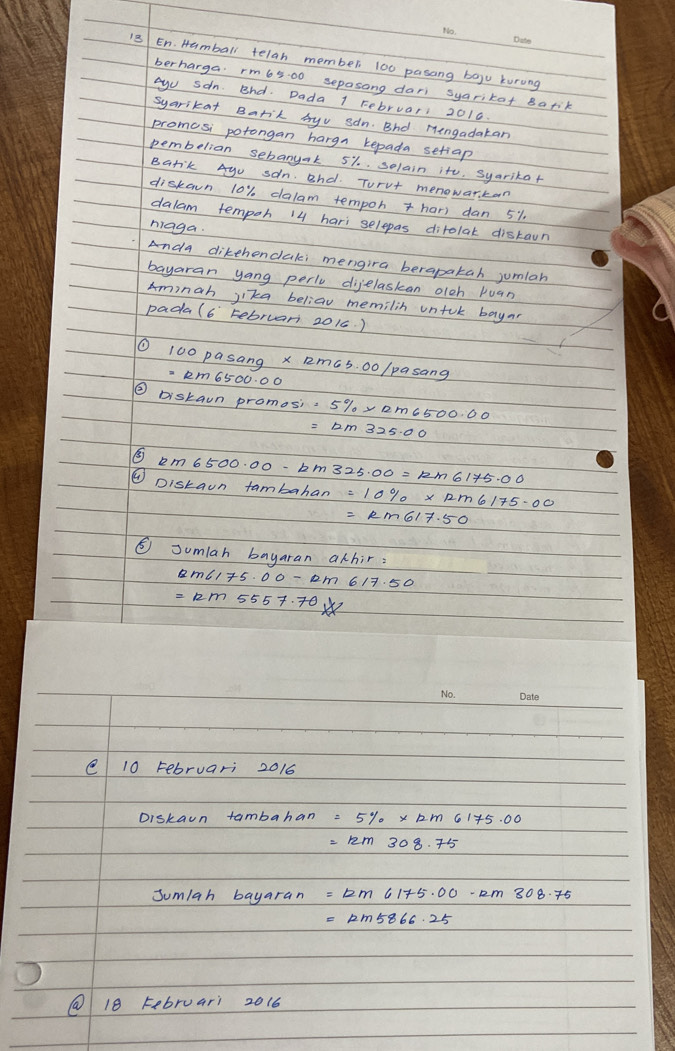 No. Date
13 En. Hambali telah membeli 100 pasang baju kurung
berharga. rm 65.00 sepasang dari syarikat Batik
Ayu Sdn. Bhd. Pada 1 Februari 2016.
syarikat Batik Ayu Sdn. Bhd Mengadakan
promosi potongan harga kepada setiap
pembelian sebanyak 5%. selain itu, syarikat
Batik Ayu Sdn. Bhd. Turut menawarkan
diskaun 10% dalam tempoh 7 hari dan 5%
dalam tempoh 14 hari selepas ditolak diskaun
niaga.
Anda dikehendaki mengira berapakah jumlah
bayaran yang perlu dijelaskan oleh Puan
Aminah jika beliau memilih untuk bayar
pada (6 Februari 2016.)
① 100 pasang x RM65.00/pasang
= RM6500.00
② Diskaun promosi = 5% x RM6500.00
= RM 325.00
③ RM 6500.00 - RM325.00 = RM6175.00
④ Diskaun tambahan = 10% x RM6175-00
= RM617.50
⑤ Jumlah bayaran akhir =
RM6175.00 - RM 617.50
= RM 5557.70
No. Date
@ 10 Februari 2016
Diskaun tambahan = 5% x RM 6175.00
= RM 308.75
Jumlah bayaran = RM 6175.00 - RM 308.75
= RM5866.25
@ 18 Februari 2016